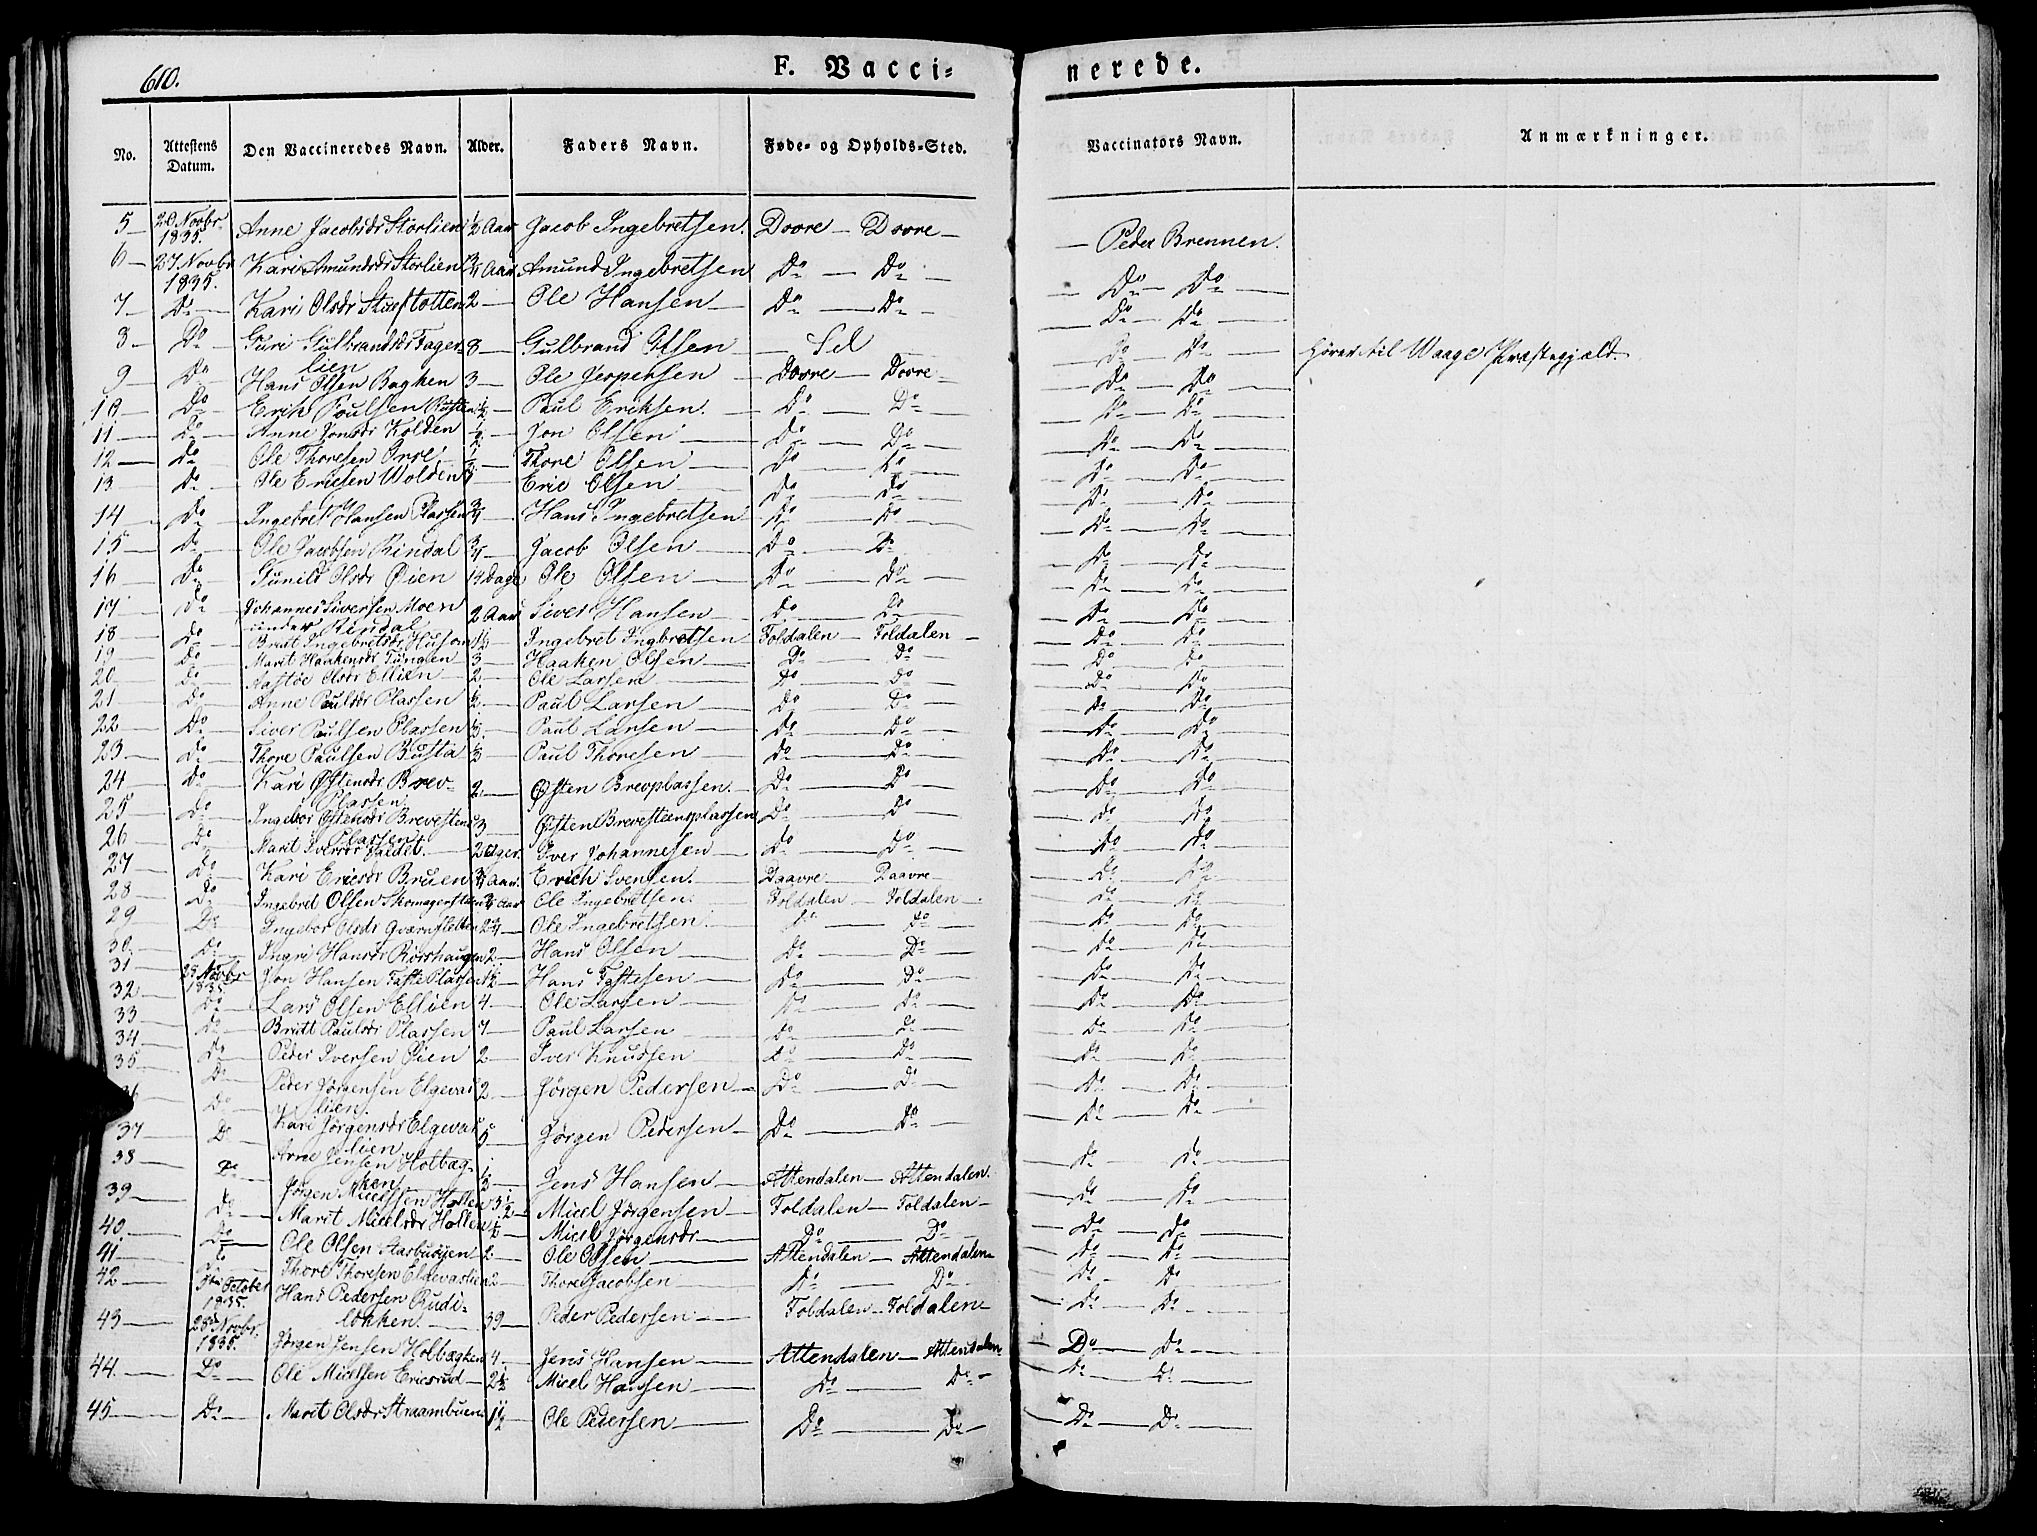 610.
F. Vacci- nerede.
No. Attestens Datum. Den Vaccineredes Navn. Alder. Faders Navn. Føde- og Opholds-Sted. Vaccinators Navn. Anmærkninger.
5 — 20 Novbr 1835. Anne Jacobsdr Storlien ½ Aar Jacob Ingebretsen. Dovre — Dovre — Peder Brennen.
6 — 27 Novbr 1835. Kari Amundsdr Storlien ¾ Aar Amund Ingebretsen Do — Do — Do — Do
7 — Do — Kari Olsdr 2 — Ole Hansen — Do — Do — Do — Do
8 — Do — Guri Gulbrandsdr Fager- 8 — Gulbrand Olsen — Sel — Do — Do — Hører til Waage Præstegjæld.
lien
9 — Do — Hans Olsen Bagken 3 — Ole Jespersen — Dovre — Dovre — Do — Do
10 — Do — Erik Poulsen Rusten ½ — Paul Eriksen. — Do — Do — Do — Do
11 — Do — Anne Jonsdr Kolden ½ — Jon Olsen — Do — Do — Do — Do
12 — Do — Ole Thoresen — Thore Olsen — Do — Do — Do — Do
13 — Do — Ole Ericsen Wolden — Eric Olsen — Do — Do — Do — Do
14 — Do — Ingebret Hansen Plassen ¾ — Hans Ingebretsen — Do — Do — Do — Do
15 — Do — Ole Jacobsen Rindal ¾ — Jacob Olsen — Do — Do — Do — Do
16 — Do — Gunild Olsdr Øien 14 Dage Ole Olsen — Do — Do — Do — Do
17 — Do — Johannes Siversen Moen 2 Aar Siver Hansen — Do — Do — Do — Do
under Rindal
18 — Do — Britt Ingebretsdr Husom 1½ Ingebret Ingbretsen Foldalen — Foldalen — Do — Do
19 — Do — Marit Haakensdr 3 — Haaken Olsen — Do — Do — Do — Do
20 — Do — Olsdr Ellien — 2 — Ole Larsen — Do — Do — Do — Do
21 — Do — Anne Paulsdr Plassen ½ — Paul Larsen — Do — Do — Do — Do
22 — Do — Siver Paulsen Plassen 5 — Paul Larsen — Do — Do — Do — Do
23 — Do — Thore Paulsen Busta — Paul Thoresen — Do — Do — Do — Do
24 — Do — Kari Østensdr Brev- 2 — Østen Brevplassen. — Do — Do — Do — Do
Plassen.
25 — Do — Ingebor Østensdr Brevestens 3 — Østen Brevesteensplassen Do — Do — Do — Do
Plassen
26 — Do — Marit Iversdr — 2 Uger. Iver Johannesen — Do — Do — Do — Do
27 — Do — Kari Ericsdr Bruen ¾ Aar. Erich Svensen. — Daavre — Daavre — Do — Do
28 — Do — Ingebret Olsen ¾ Aar Ole Ingebretsen. Foldalen — Foldalen — Do — Do
29 — Do — Ingebor Olsdr Qværnsletten 2¾ — Ole Ingebretsen. Do — Do — Do — Do
30. — Do — Ingri Hansdr Rosshaugen 2 — Hans Olsen — Do — Do — Do — Do
31 — 29 Novbr 1835. Jon Hansen Faste Plassen 1½ — Hans Fastesen — Do — Do — Do — Do
32 — Do — Lars Olsen Ellien 4 — Ole Larsen — Do — Do — Do — Do
33 — Do — Britt Paulsdr Plassen 7 — Paul Larsen — Do — Do — Do — Do
34 — Do — Peder Iversen Øien 2 — Iver Knudsen — Do — Do — Do — Do
35 — Do — Peder Jørgensen Elgevas 2 — Jørgen Pedersen — Do — Do — Do — Do
lien.
36 — Do — Kari Jørgensdr Elgevas 5 — Jørgen Pedersen — Do — Do — Do — Do
lien
37 — Do — Arne Jensen Holbæg- ½ — Jens Hansen — Attendalen — Attendalen. Do — Do
ken
38 — Do — Jørgen Micelsen Holten 3½ — Micel Jørgensen — Foldalen — Foldalen — Do — Do
39 — Do — Marit Micelsdr Holten ½ — Micel Jørgensdr — Do — Do — Do — Do
40. — Do — Ole Olsen 2 — Ole Olsen — Attendalen — Attendalen — Do — Do
41 — Do — Thore Thoresen Eldevaslien 2 — Thore Jacobsen — Do — Do — Do — Do
42 — October 1835. Hans Pedersen Rudi- 39 — Peder Pedersen — Foldalen — Foldalen — Do — Do
løkken.
43 — 28 Novbr. 1835. Jørgen Jensen Holbægken 4 — Jens Hansen — Attendalen — Attendalen — Do — Do
44. — Do — Ole Micelsen Ericsrud — 2½ Micel Hansen — Do — Do — Do — Do
45 — Do — Marit Olsdr Straambuen 1½ Ole Pedersen — Do — Do — Do — Do